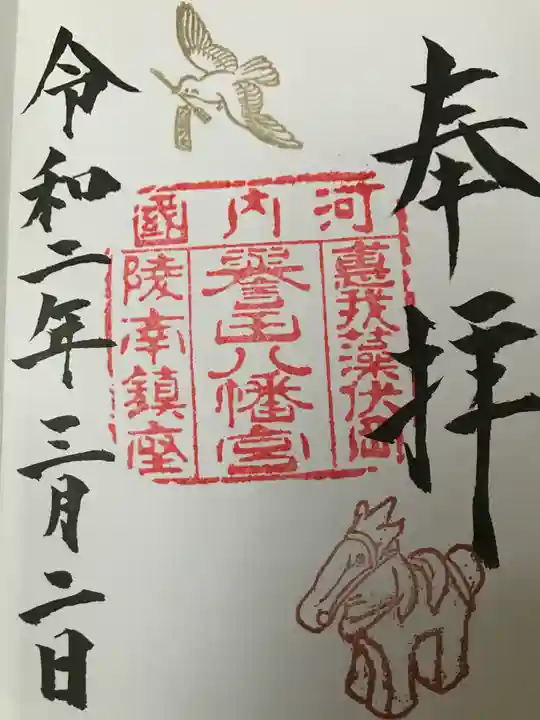 奉拝
河内國
惠我藻伏岡
譽田八幡宮
陵南鎮座
令和二年三月二日